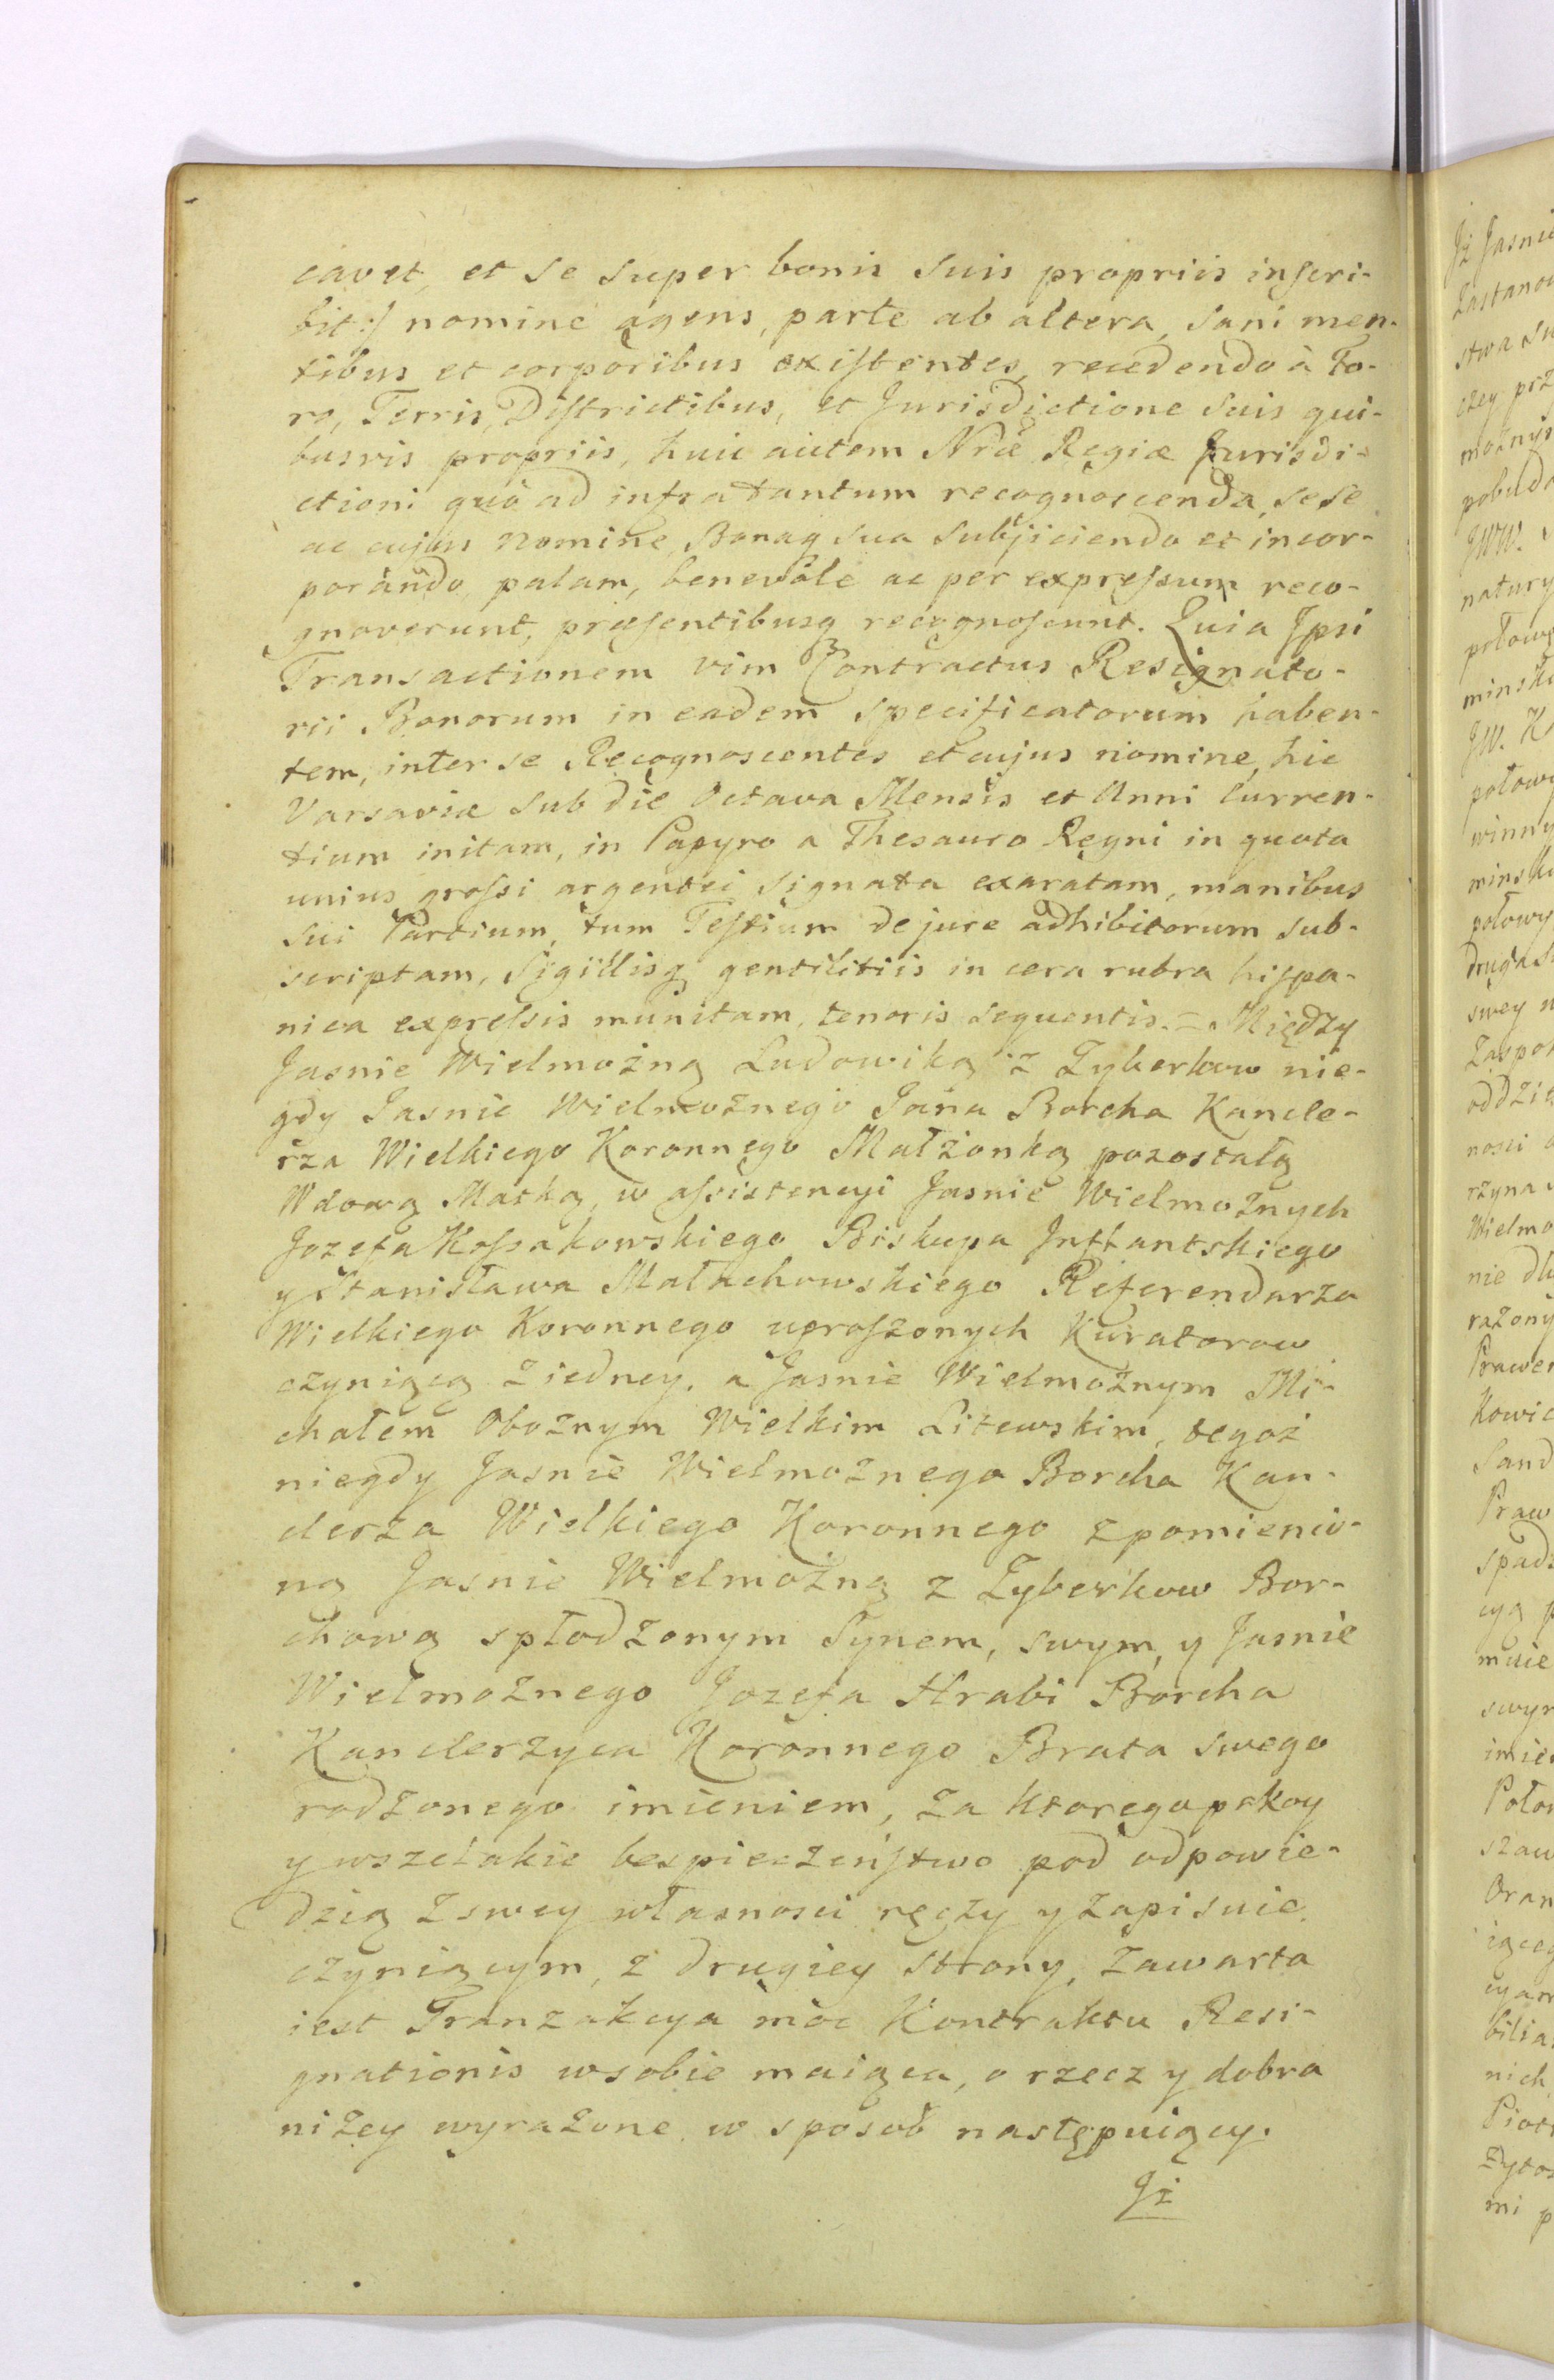 cavet, et se super bonis suis propriis inscri-
bit:/ nomine agens, parte ab altera, sani men-
tibus et corporibus existentes, recedendo à Fo-
ro, Terris, Districtibus, et Jurisdictione suis qui-
busvis propriis, huic autem Nræ Regiæ Jurisdi-
ctioni quò ad infra tantum recognoscenda, sese
ac cujus nomine, Bonaq sua subjiciendo et incor-
porando, palam, benevole ac per expressum reco-
gnoverunt, præsentibusq recognoscunt. Quia Ipsi
Transactionem vim Contractus Resignato-
rii Bonorum in eadem specificatorum haben-
tem, inter se Recognoscentes et cujus nomine, hic
Varsaviæ sub die Octava Mensis et Anni Curren-
tium initam, in Papyro a Thesauro Regni in quota
unius grossi argentei signata exaratam, manibus
sui Partium, tum Testium de jure adhibitorum sub-
scriptam, Sigillisq gentilitiis in cera rubra hispa-
nica expressis munitam, tenoris sequentis. = Między
Jasnie Wielmożną Ludowiką z Zyberkow nie-
gdy Jasnie Wielmożnego Jana Borcha Kancle-
rza Wielkiego Koronnego Małżonką pozostałą
Wdową Matką, w assistencyi Jasnie Wielmożnych
Jozefa Kossakowskiego Biskupa Inflantskiego
y Stanisława Małachowskiego Referendarza
Wielkiego Koronnego uproszonych Kuratorow
czyniącą z iedney, a Jasnie Wielmożnym Mi-
chałem Obożnym Wielkim Litewskim, tegoż
niegdy Jasnie Wielmożnego Borcha Kan-
clerza Wielkiego Koronnego z pomienio-
ną Jasnie Wielmożną z Zyberkow Bor-
chową spłodzonym Synem, swym, y Jasnie
Wielmożnego Jozefa Hrabi Borcha
Kanclerzyca Koronnego Brata swego
rodzonego imieniem, za ktorego pokoy
y wszelakie bespieczeństwo pod odpowie-
dzią z swey własnosci ręczy y zapisuie
czyniącym, z drugiey strony, zawarta
iest Tranzakcya moc Kontraktu Resi-
gnationis w sobie maiąca, o rzecz y dobra
niżey wyrażone w sposob następuiący.
Iż